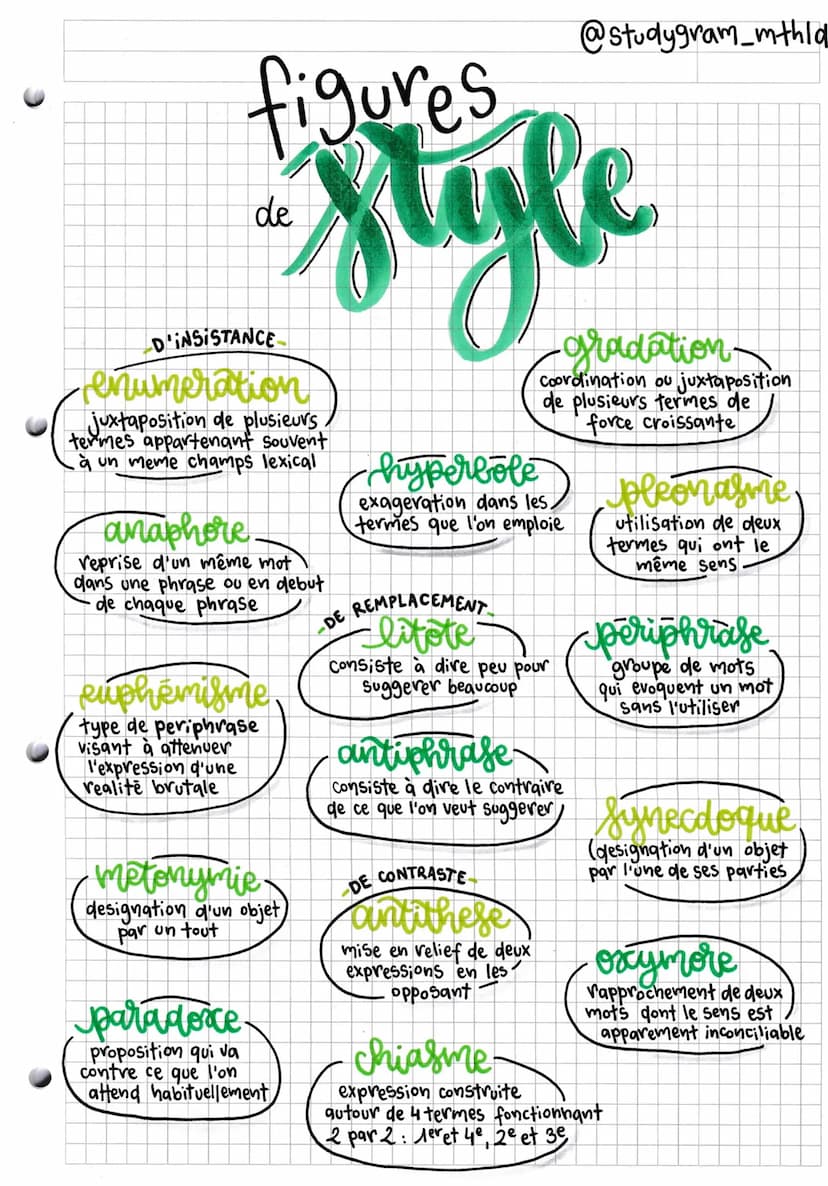 @studygram_mthld
figures
de style
-D'INSISTANCE-
enumeration
juxtaposition de plusieurs
termes appartenant souvent
à un meme champs lexical
gradation
coordination ou juxtaposition
de plusieurs termes de
force croissante
hyperbole
exageration dans les
termes que l'on emploie
pleonasme
utilisation de deux
termes qui ont le
même sens
anaphore
reprise d'un même mot
dans une phrase ou en debut
de chaque phrase
-DE REMPLACEMENT-
litote
consiste à dire peu pour
suggerer beaucoup
périphrase
groupe de mots
qui evoquent un mot
sans l'utiliser
euphémisme
type de periphrase
visant à attenuer
l'expression d'une
realité brutale
antiphrase
consiste à dire le contraire
de ce que l'on veut suggerer
synecdoque
(designation d'un objet
par l'une de ses parties
métonymie
designation d'un objet
par un tout
-DE CONTRASTE-
antithese
mise en relief de deux
expressions en les
opposant
oxymore
rapprochement de deux
mots dont le sens est
apparement inconciliable
paradoxe
proposition qui va
contre ce que l'on
attend habituellement
chiasme
expression construite
autour de 4 termes fonctionnant
2 par 2 : 1er et 4e, 2e et 3e